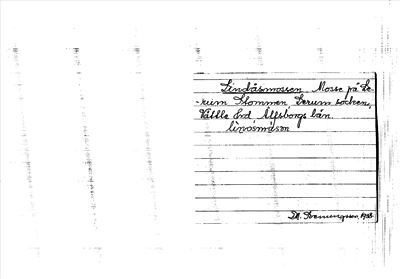 Lindåsmossen, Mosse på Le-
-rum Stommen, Lerum socken,
Vättle hd, Älfsborgs län.
linosmåsen